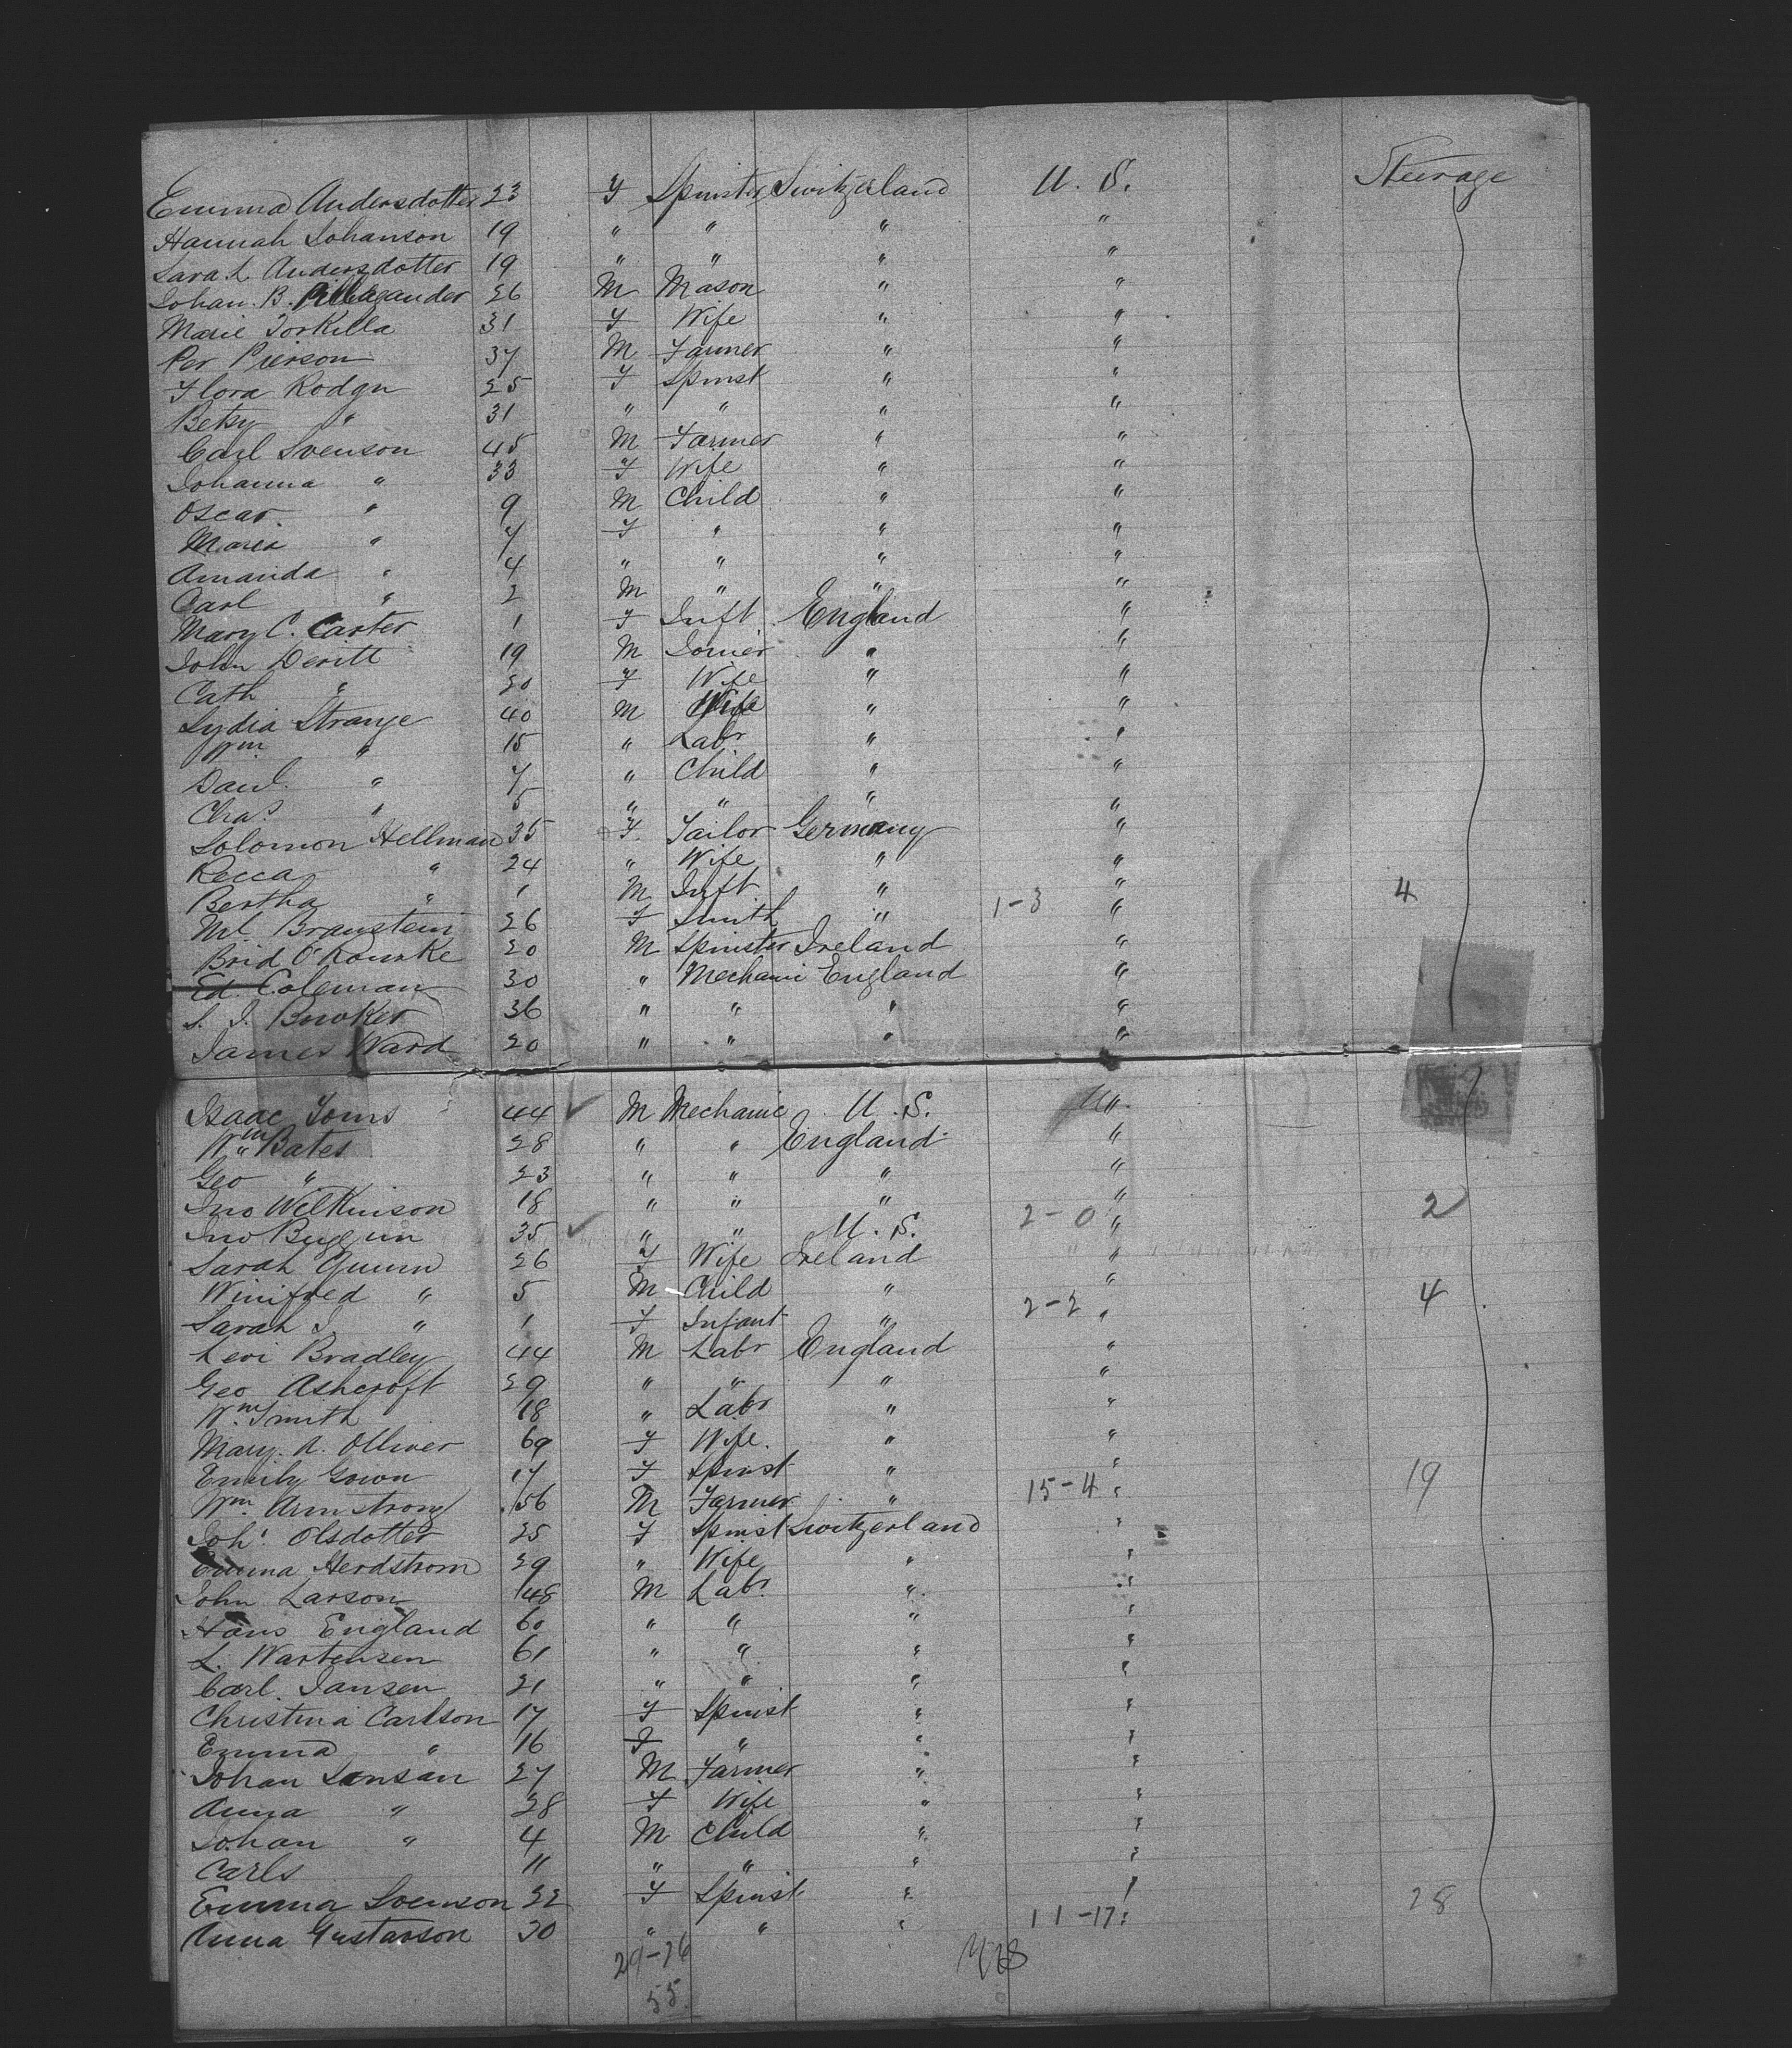 Emma Andersdotter 23 F Spinster Switzerland U. S. Steerage
Hannah Johanson 19 " " " "
Sarah Andersdotter 19 " " " "
Johan. B. 26 M Mason " "
Marie Torkilla 31 F Wife " "
Per Pierson 37 M Farmer " "
Flora Rodgn 25 F Spinst " "
Betsy " 31 " " " "
Carl Svenson 45 M Farmer " "
Johanna " 33 F Wife " "
Oscar " 9 M Child " "
Maria " 7 F " " "
Amanda " 4 " " " "
Carl " 2 M " " "
Mary C. Carter 1 F Inft England "
John Devitt 19 M Joiner " "
Cath " 20 F Wife " "
Lydia Strange 40 M Wife " "
Wm " 15 " Labr " "
Danl. " 7 " Child " "
Chas " 5 " " " "
Solomon Hellman 35 F Tailor Germany "
Recca " 24 " Wife " "
Bertha " 1 M Inft " " 4
Ml. Branstein 26 F Smith " 1-3 "
Brid O'Rourke 20 M Spinster Ireland "
Ed. Coleman 30 " Mechani England "
S. J. Bowker 36 " " " "
James Ward 20 " " " "
Isaac Toms 44 M Mechanic U. S. "
Wm Bates 28 " " England "
Geo " 23 " " " "
Jno Wilkinson 18 " " " " 2
Jno Buggin 35 " " U. S. 2-0 "
Sarah Quinn 26 F Wife Ireland "
Winifred " 5 M Child " " 4
Sarah J. " 1 F Infant " 2-2 "
Levi Bradley 44 M Labr England "
Geo Ashcroft 29 " " " "
Wm. Smith 18 " Labr " "
Mary. A. Olliver 69 F Wife. " "
Emily Gown 17 F Spinst " " 19
Wm. Armstrong 56 M Farmer " 15-4 "
Joh. Olsdotter 25 F Spinst Switzerland "
Emma Herdstrom 29 " Wife " "
John Larson 48 M Labr. " "
Hans England 60 " " " "
L. Wartensen 61 " " " "
Carl Jansen 21 " " " "
Christina Carlson 17 F Spinst " "
Emma " 16 F " " "
Johan Sansan 27 M Farmer " "
Anna " 28 F Wife " "
Johan " 4 M Child " "
Carls 11 " " " "
Emma Svenson 22 F Spinst " " 28
Anna Gustavson 30 " " " 11-17 "
29-26
55